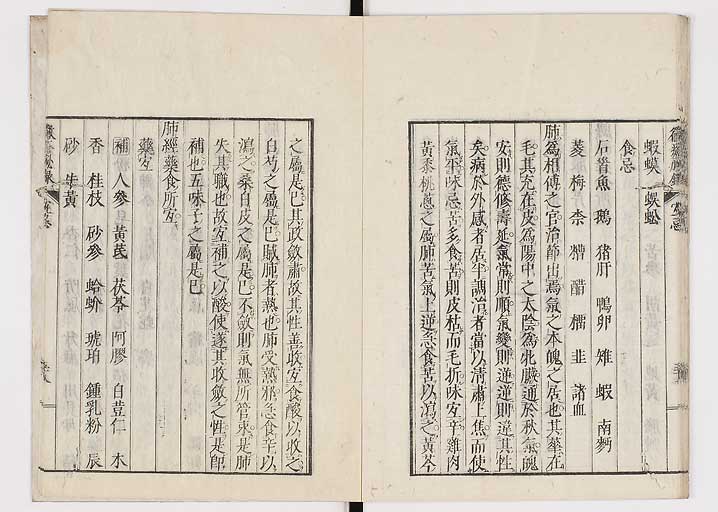 蝦蟆　蜈蚣
食忌
石首魚　鵝　猪肝　鴨卵　雉　蝦　南麪
菱　梅　柰　糟　醋　糯　韭　諸血
肺為相傅之官治節出焉氣之本魄之居也其華在
毛其充在皮為陽中之太陰為牝臟通於秋氣魄
安則德修壽延氣常則順氣變則逆逆則違其性
矣病於外感者居半調治者當以清肅上焦而使
氣平味忌苦多食苦則皮枯而毛折味宜辛雞肉
黃黍桃蔥之屬肺苦氣上逆急食苦以瀉之黃芩
之屬是巳其政斂肅故其性善收宜食酸以收之
白芍之屬是巳賊肺者熱也肺受熱邪急食辛以
瀉之桑白皮之屬是巳不斂則氣無所管束是肺
失其職也故宜補之以酸使遂其收斂之性是即
補也五味子之屬是巳
肺經藥食所宜
藥宜
補　人參　黃芪　茯苓　阿膠　白荳仁　木
香　桂枝　砂參　蛤蚧　琥珀　鍾乳粉　辰
砂　牛黃